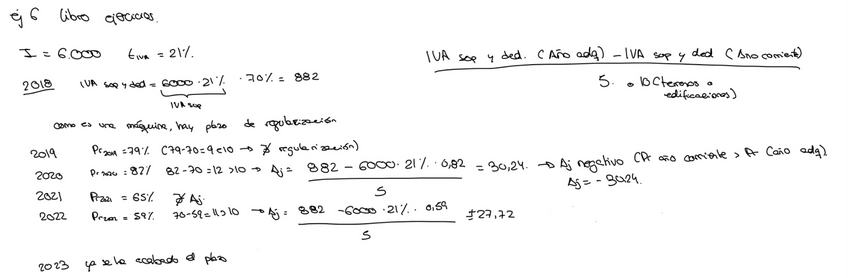 ej 6 libro ejercicios.
I = 6.000 t IVA = 21%.
IVA sop y ded. (Año adq) - IVA sop y ded (Año corriente)
5. o 10 (terrenos o edificaciones)
2018 IVA sop y ded = 6000 · 21% · 70% = 882
IVA sop
como es una máquina, hay plazo de regularización
2019 Pr2019 = 79% (79-70=9<10 → ∄ regularización)
2020 Pr2020 = 82% 82-70=12>10 → Aj = 882 - 6000 · 21% · 0,82 / 5 = 30,24. → Aj negativo (Pr año corriente > Pr (año adq)
Aj = - 30,24.
2021 Pr2021 = 65% ∄ Aj.
2022 Pr2022 = 59% 70-59=11>10 → Aj = 882 - 6000 · 21% · 0,59 / 5 ± 27,72
2023 ya se ha acabado el plazo